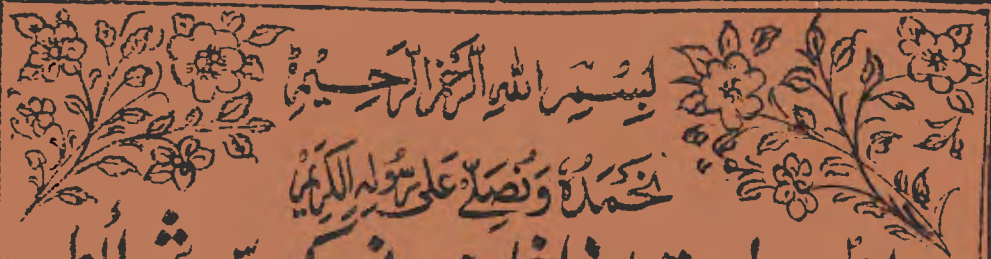 بِسْمِ اللهِ الرَّحْمٰنِ الرَّحِيْمِ
نَحْمَدُهٗ وَنُصَلِّے عَلٰی رَسُوْلِهِ الْكَرِيْمِ